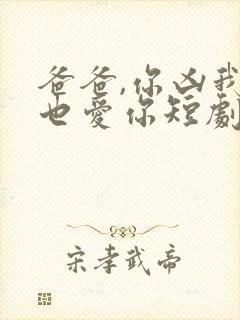 爸爸,你凶我
也爱你短劇
宋孝武帝